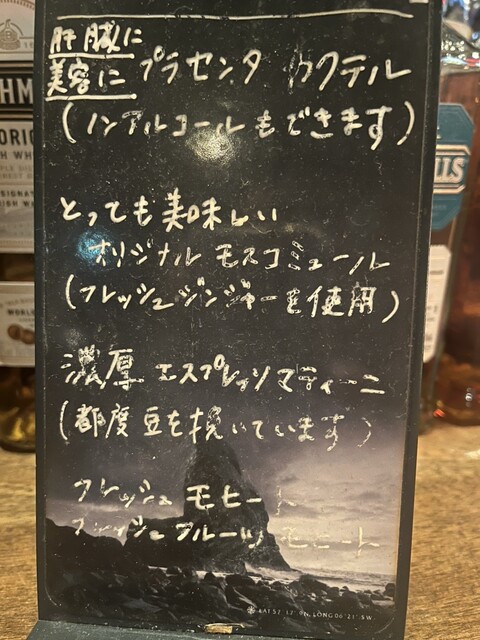 肝臓に
美容に プラセンタ カクテル
(ノンアルコールもできます)
とっても美味しい
オリジナル モスコミュール
(フレッシュジンジャーを使用)
濃厚 エスプレッソマティーニ
(都度豆を挽いています)
フレッシュ モヒート
フレッシュフルーツ モヒート